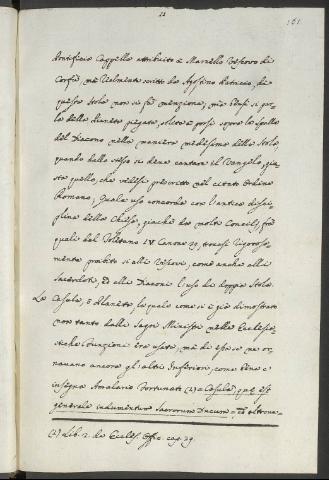 11
161
Pontificio Cappello attribuito a Marcello Vescovo di
Corfù, mà realmente scritto da Agostino Patricio, di
questa Stola non si fà menzione, mà
della Pianeta piegata, alzata e posta sopra la spalla
del Diacono nella maniera medesima della Stola,
quando dallo stesso si deve cantare il Vangelo, giu
sta quello, che vedesi prescritto nel citato Ordine
Romano, quale uso concorda con l'antica disci
plina della Chiesa, giacchè da molti Concilj, frà
quali dal Toletano IV Canone 39, trovasi rigorosa
mente proibito sì alli Vescovi, come anche alli
Sacerdoti, ed alli Diaconi l'uso di doppia Stola.
La Casula, ò Pianeta, la quale come si è già dimostrato
non tanto dalli Sagri Ministri nelle Ecclesia
stiche Funzioni era usata, mà di essa se ne or
navano ancora gli altri Inferiori, come bene c'
insegna Amalario Fortunato (2) = Casula, quæ est
generale indumentum Sacrorum Ducum = ed altrova=
(2) Lib. 2. de Eccles. Offic. cap. 19.